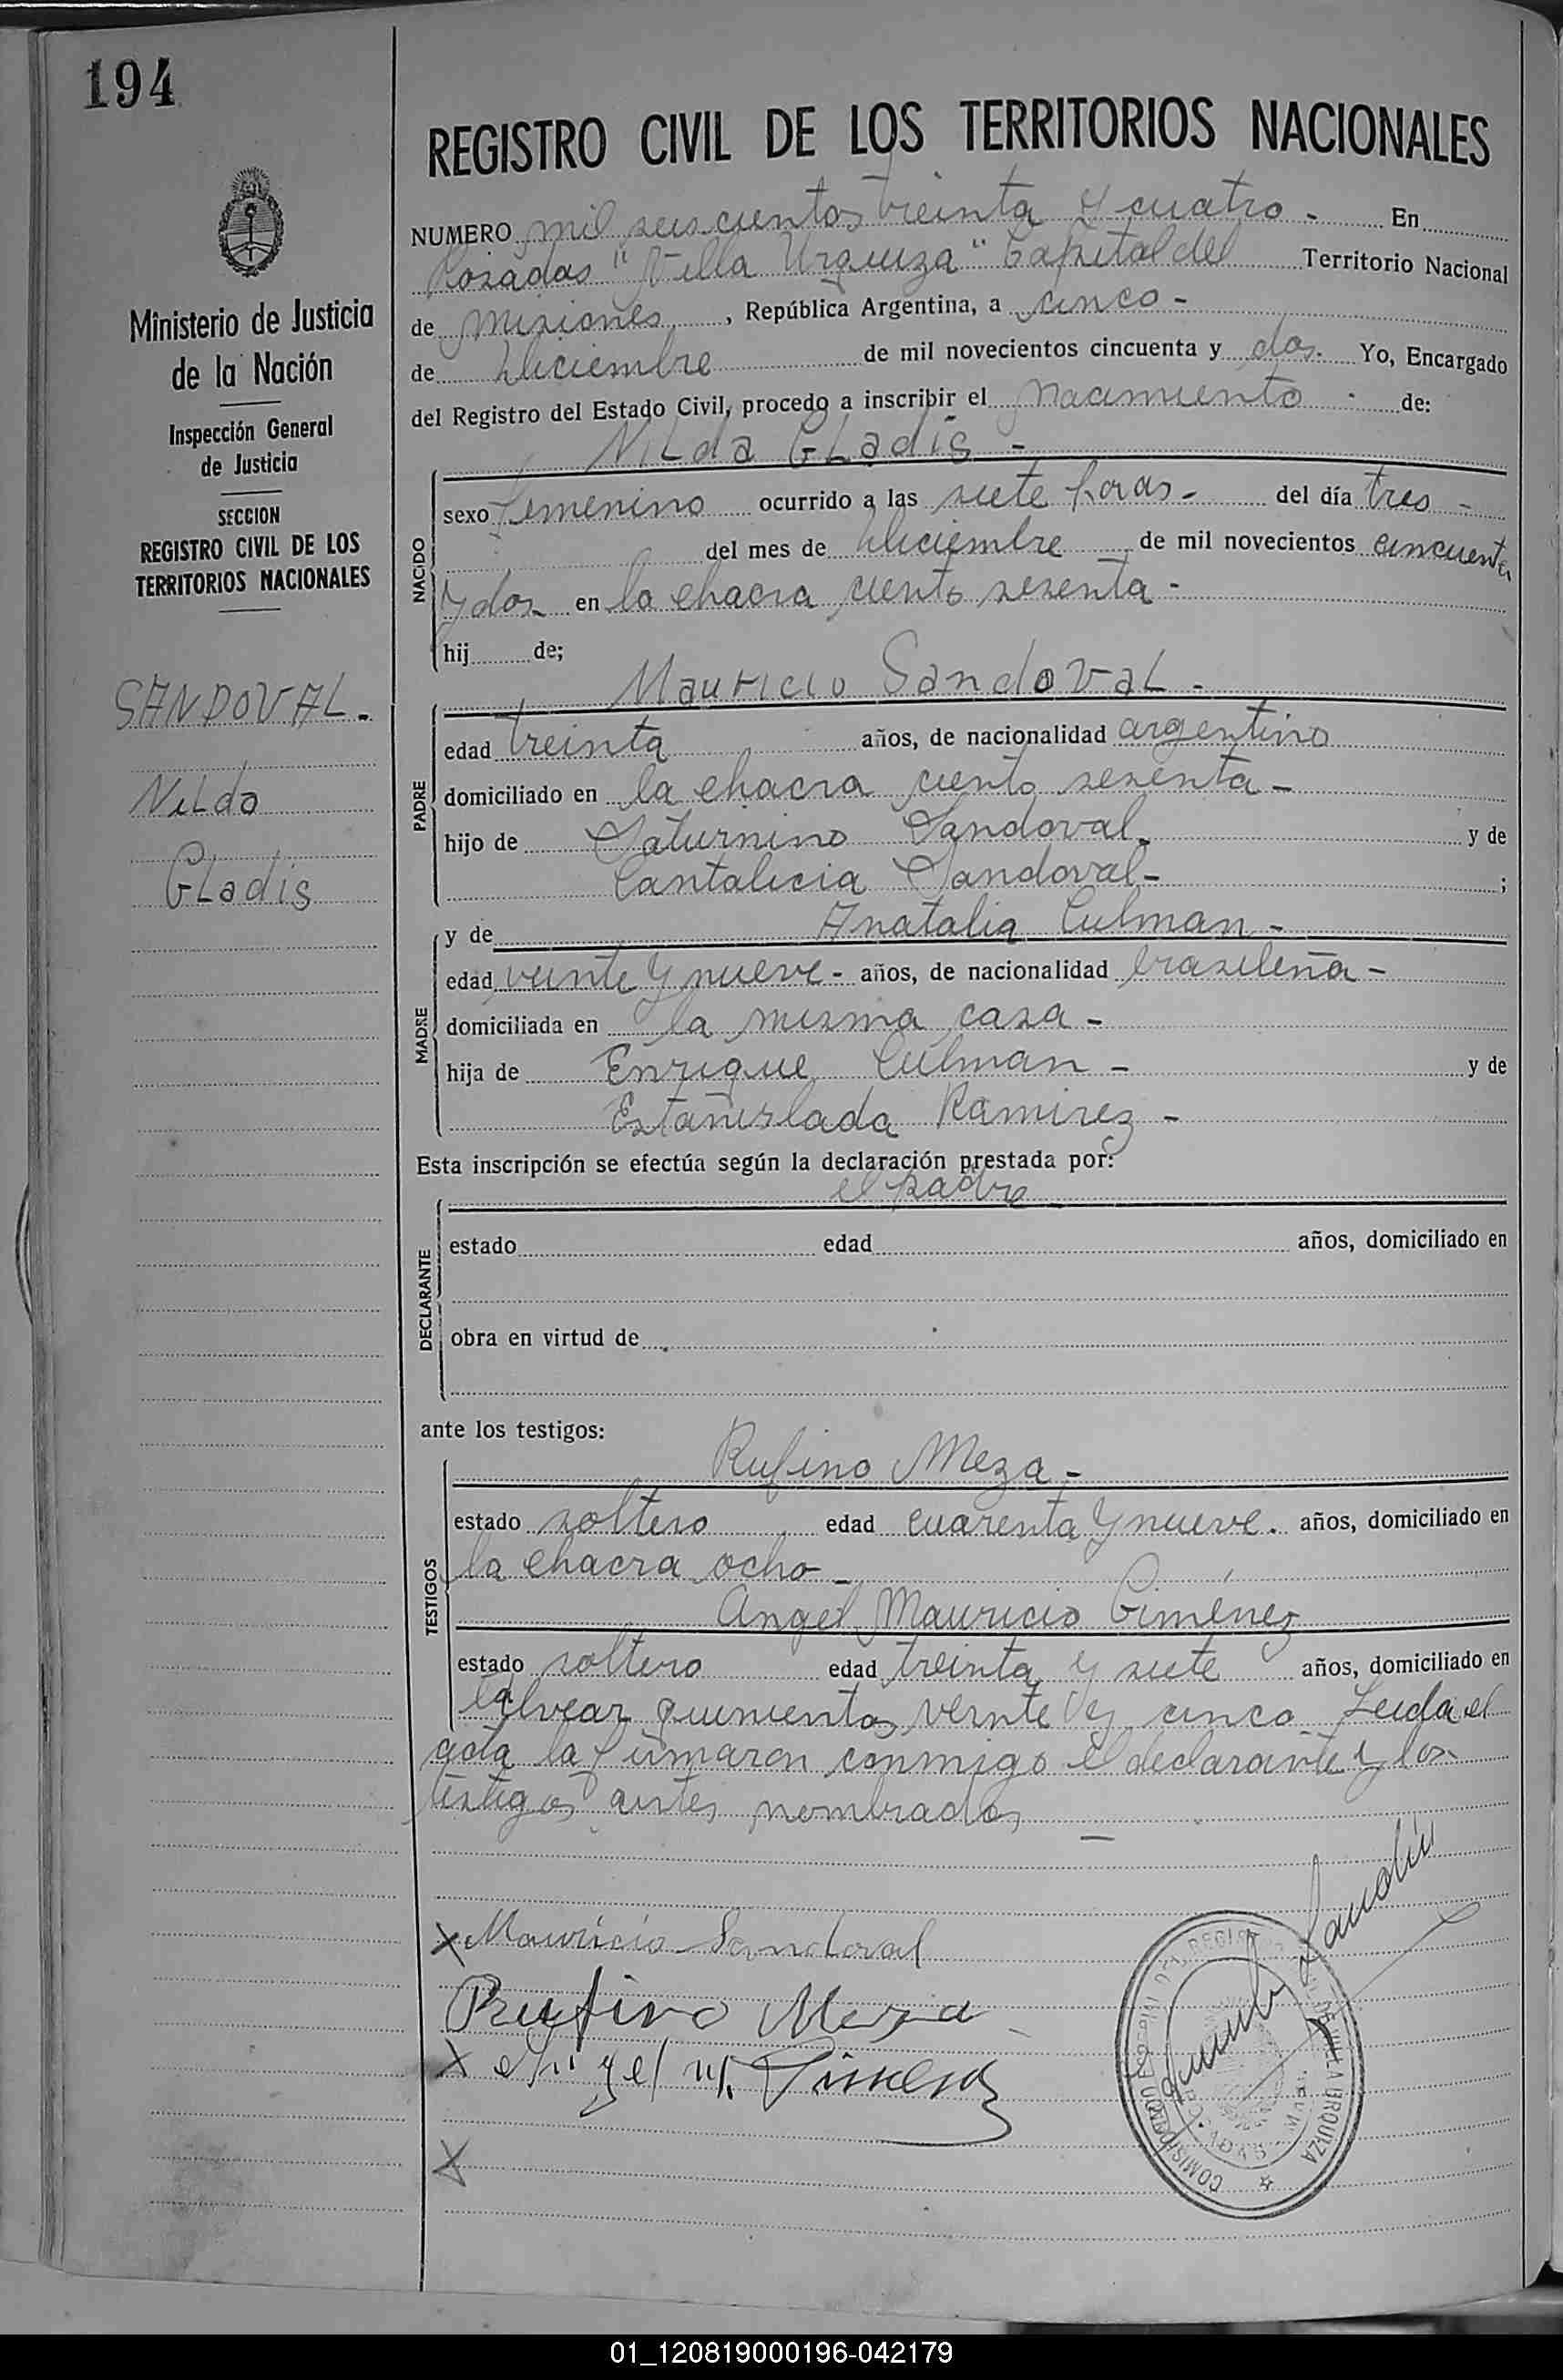 194
REGISTRO CIVIL DE LOS TERRITORIOS NACIONALES
Ministerio de Justicia
de la Nación
Inspección General
de Justicia
SECCION
REGISTRO CIVIL DE LOS
TERRITORIOS NACIONALES
SANDOVAL.
NiLda
GLadis
NUMERO mil seiscientos treinta y cuatro - En
Posadas "Villa Urquiza" Capital del Territorio Nacional
de Misiones, República Argentina, a cinco -
de Diciembre de mil novecientos cincuenta y dos. Yo, Encargado
del Registro del Estado Civil, procedo a inscribir el Nacimiento - de:
NILda GLadis -
NACIDO
sexo femenino ocurrido a las siete horas - del día tres -
del mes de Diciembre de mil novecientos cincuenta
y dos en la chacra ciento sesenta -
hij de;
Mauricio SandovaL -
PADRE
edad treinta años, de nacionalidad argentino
domiciliado en la chacra ciento sesenta -
hijo de Saturnino Sandoval y de
Cantalicia Sandoval - ;
y de Anatalia Culman -
MADRE
edad veinte y nueve - años, de nacionalidad brasileña -
domiciliada en la misma casa -
hija de Enrique Culman - y de
Estañislada Ramirez -
Esta inscripción se efectúa según la declaración prestada por:
el padre
DECLARANTE
estado edad años, domiciliado en
obra en virtud de
ante los testigos:
Rufino Meza -
TESTIGOS
estado soltero edad cuarenta y nueve. años, domiciliado en
la chacra ocho -
Angel Mauricio Giménez
estado soltero edad treinta y siete años, domiciliado en
Alvear quinientos veinte y cinco Leida el
acta la firmaron conmigo el declarante y los
testigos antes nombrados -
X Mauricio Sandoval
Rufino Meza
X Angel M. Gimenez
X
VILLA URQUIZA
01_120819000196-042179